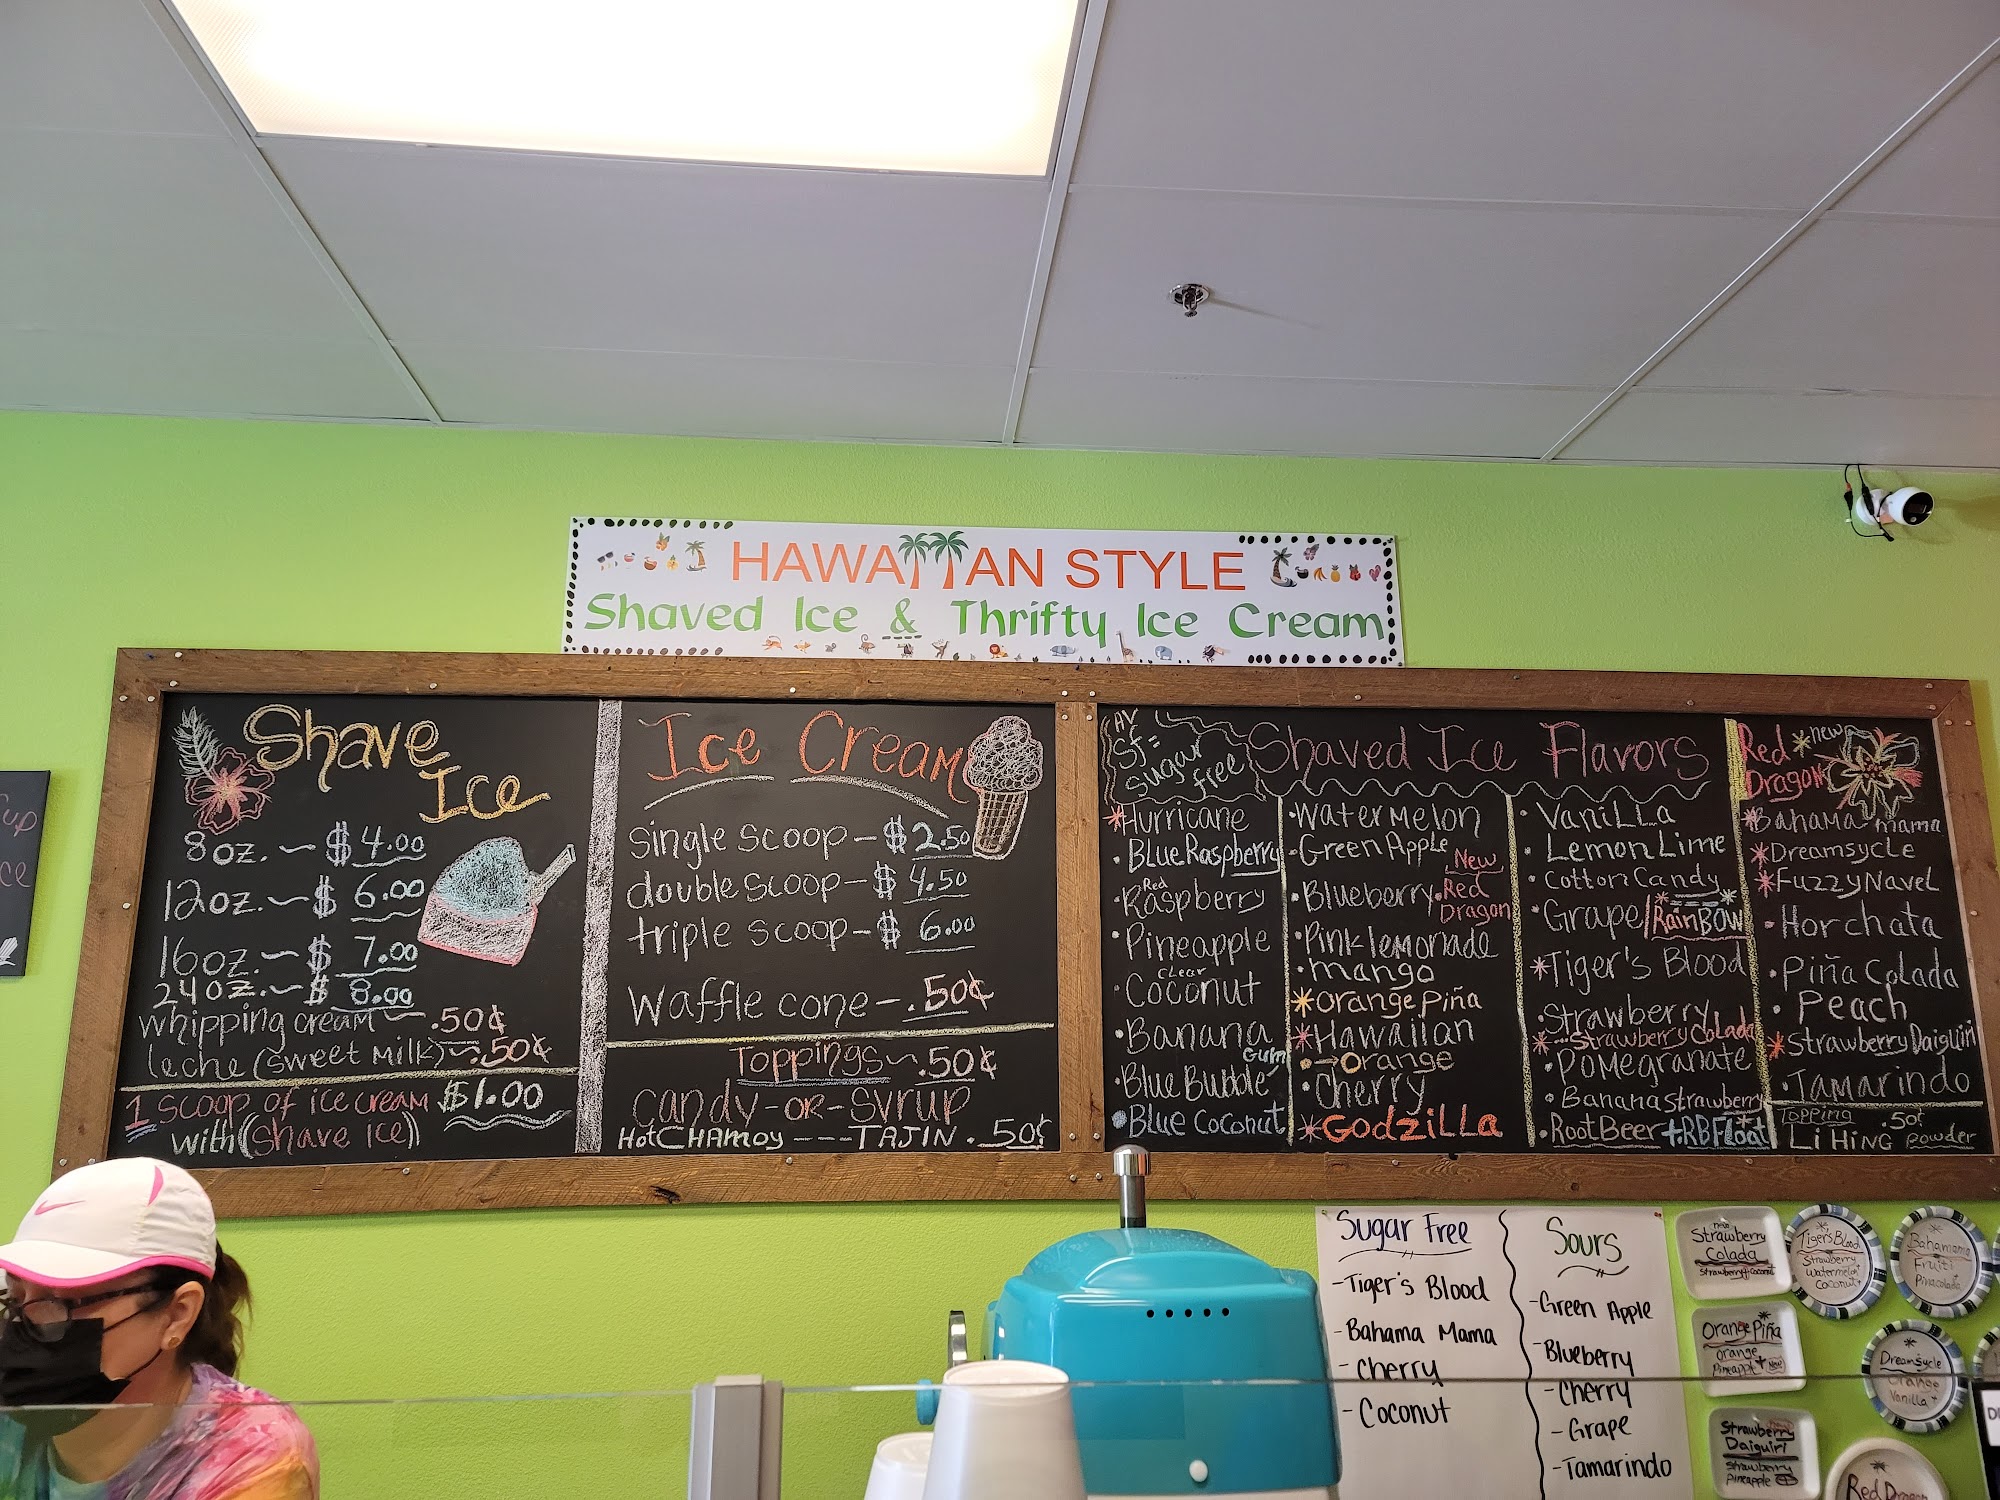 HAWAIIAN STYLE
Shaved Ice & Thrifty Ice Cream
Shave
Ice
8oz. ~ $ 4.00
12oz. ~ $ 6.00
16oz. ~ $ 7.00
24oz. ~ $ 8.00
whipping cream ~ .50¢
leche (sweet milk) ~ .50¢
1 scoop of ice cream $1.00
with (shave ice)
Ice Cream
single scoop - $ 2.50
double scoop - $ 4.50
triple scoop - $ 6.00
waffle cone - .50¢
Toppings ~ .50¢
candy-or-syrup
Hot CHAmoy --- TAJIN . 50¢
SF =
Sugar
free
Shaved Ice Flavors
*Hurricane
• Blue Raspberry
• Red Raspberry
• Pineapple
clear
• Coconut
• Banana
• Blue Bubble Gum
• Blue Coconut
• Watermelon
• Green Apple
• Blueberry
New
• Red
Dragon
• Pink lemonade
• mango
*Orange piña
*Hawaiian
→ Orange
• Cherry
*GODZILLA
• Vanilla
• Lemon Lime
• Cotton Candy
• Grape/RainBOW
*Tiger's Blood
• Strawberry
* Strawberry Colada
• Pomegranate
• Banana Strawberry
• Root Beer + RB Float
Red *new
Dragon
*Bahama mama
*Dreamsycle
*Fuzzy Navel
• Horchata
• Piña Colada
• Peach
*Strawberry Daiguiri
• Tamarindo
Topping .50¢
Li Hing Powder
cup
ce
Sugar Free
-Tiger's Blood
-Bahama Mama
-Cherry
-Coconut
Sours
-Green Apple
-Blueberry
-Cherry
-Grape
-Tamarindo
new
Strawberry
Colada
Strawberry+Coconut
Tiger's Blood
Strawberry
Watermelon
Coconut
Bahamama
Fruiti
Pinacolada
Orange Piña
orange
Pineapple + New
Dreamsycle
Orange
Vanilla +
Strawberry
Daiguiri
Strawberry
Pineapple
Red Dragon